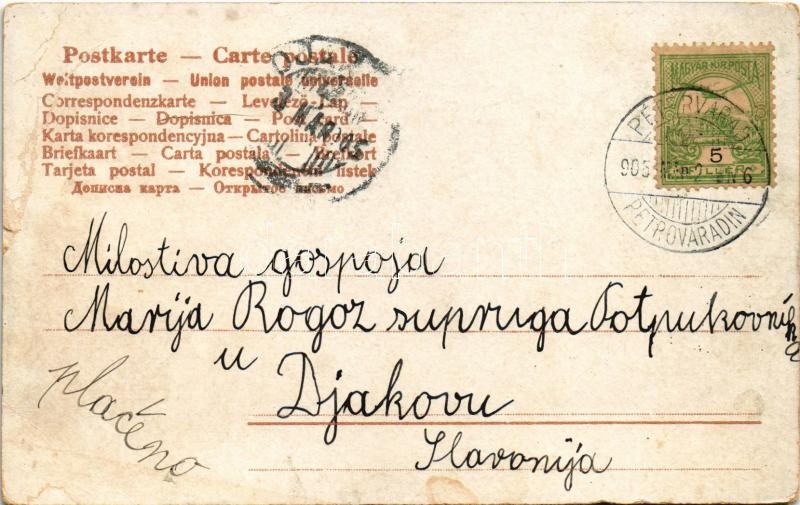 Postkarte — Carte postale
Weltpostverein — Union postale universelle
Correspondenzkarte — Levelező-Lap —
Dopisnice — Dopisnica — Post card —
Karta korespondencyjna — Cartolina postale
Briefkaart — Carta postala — Brefkort
Tarjeta postal — Korespondenční listek
Дописна карта — Открытое письмо
MAGYAR KIR. POSTA
5
PETROVARADIN
Milostiva gospoja
Marija Rogoz supruga Potpukovnika
u
Djakovu
Slavonija
plaćeno